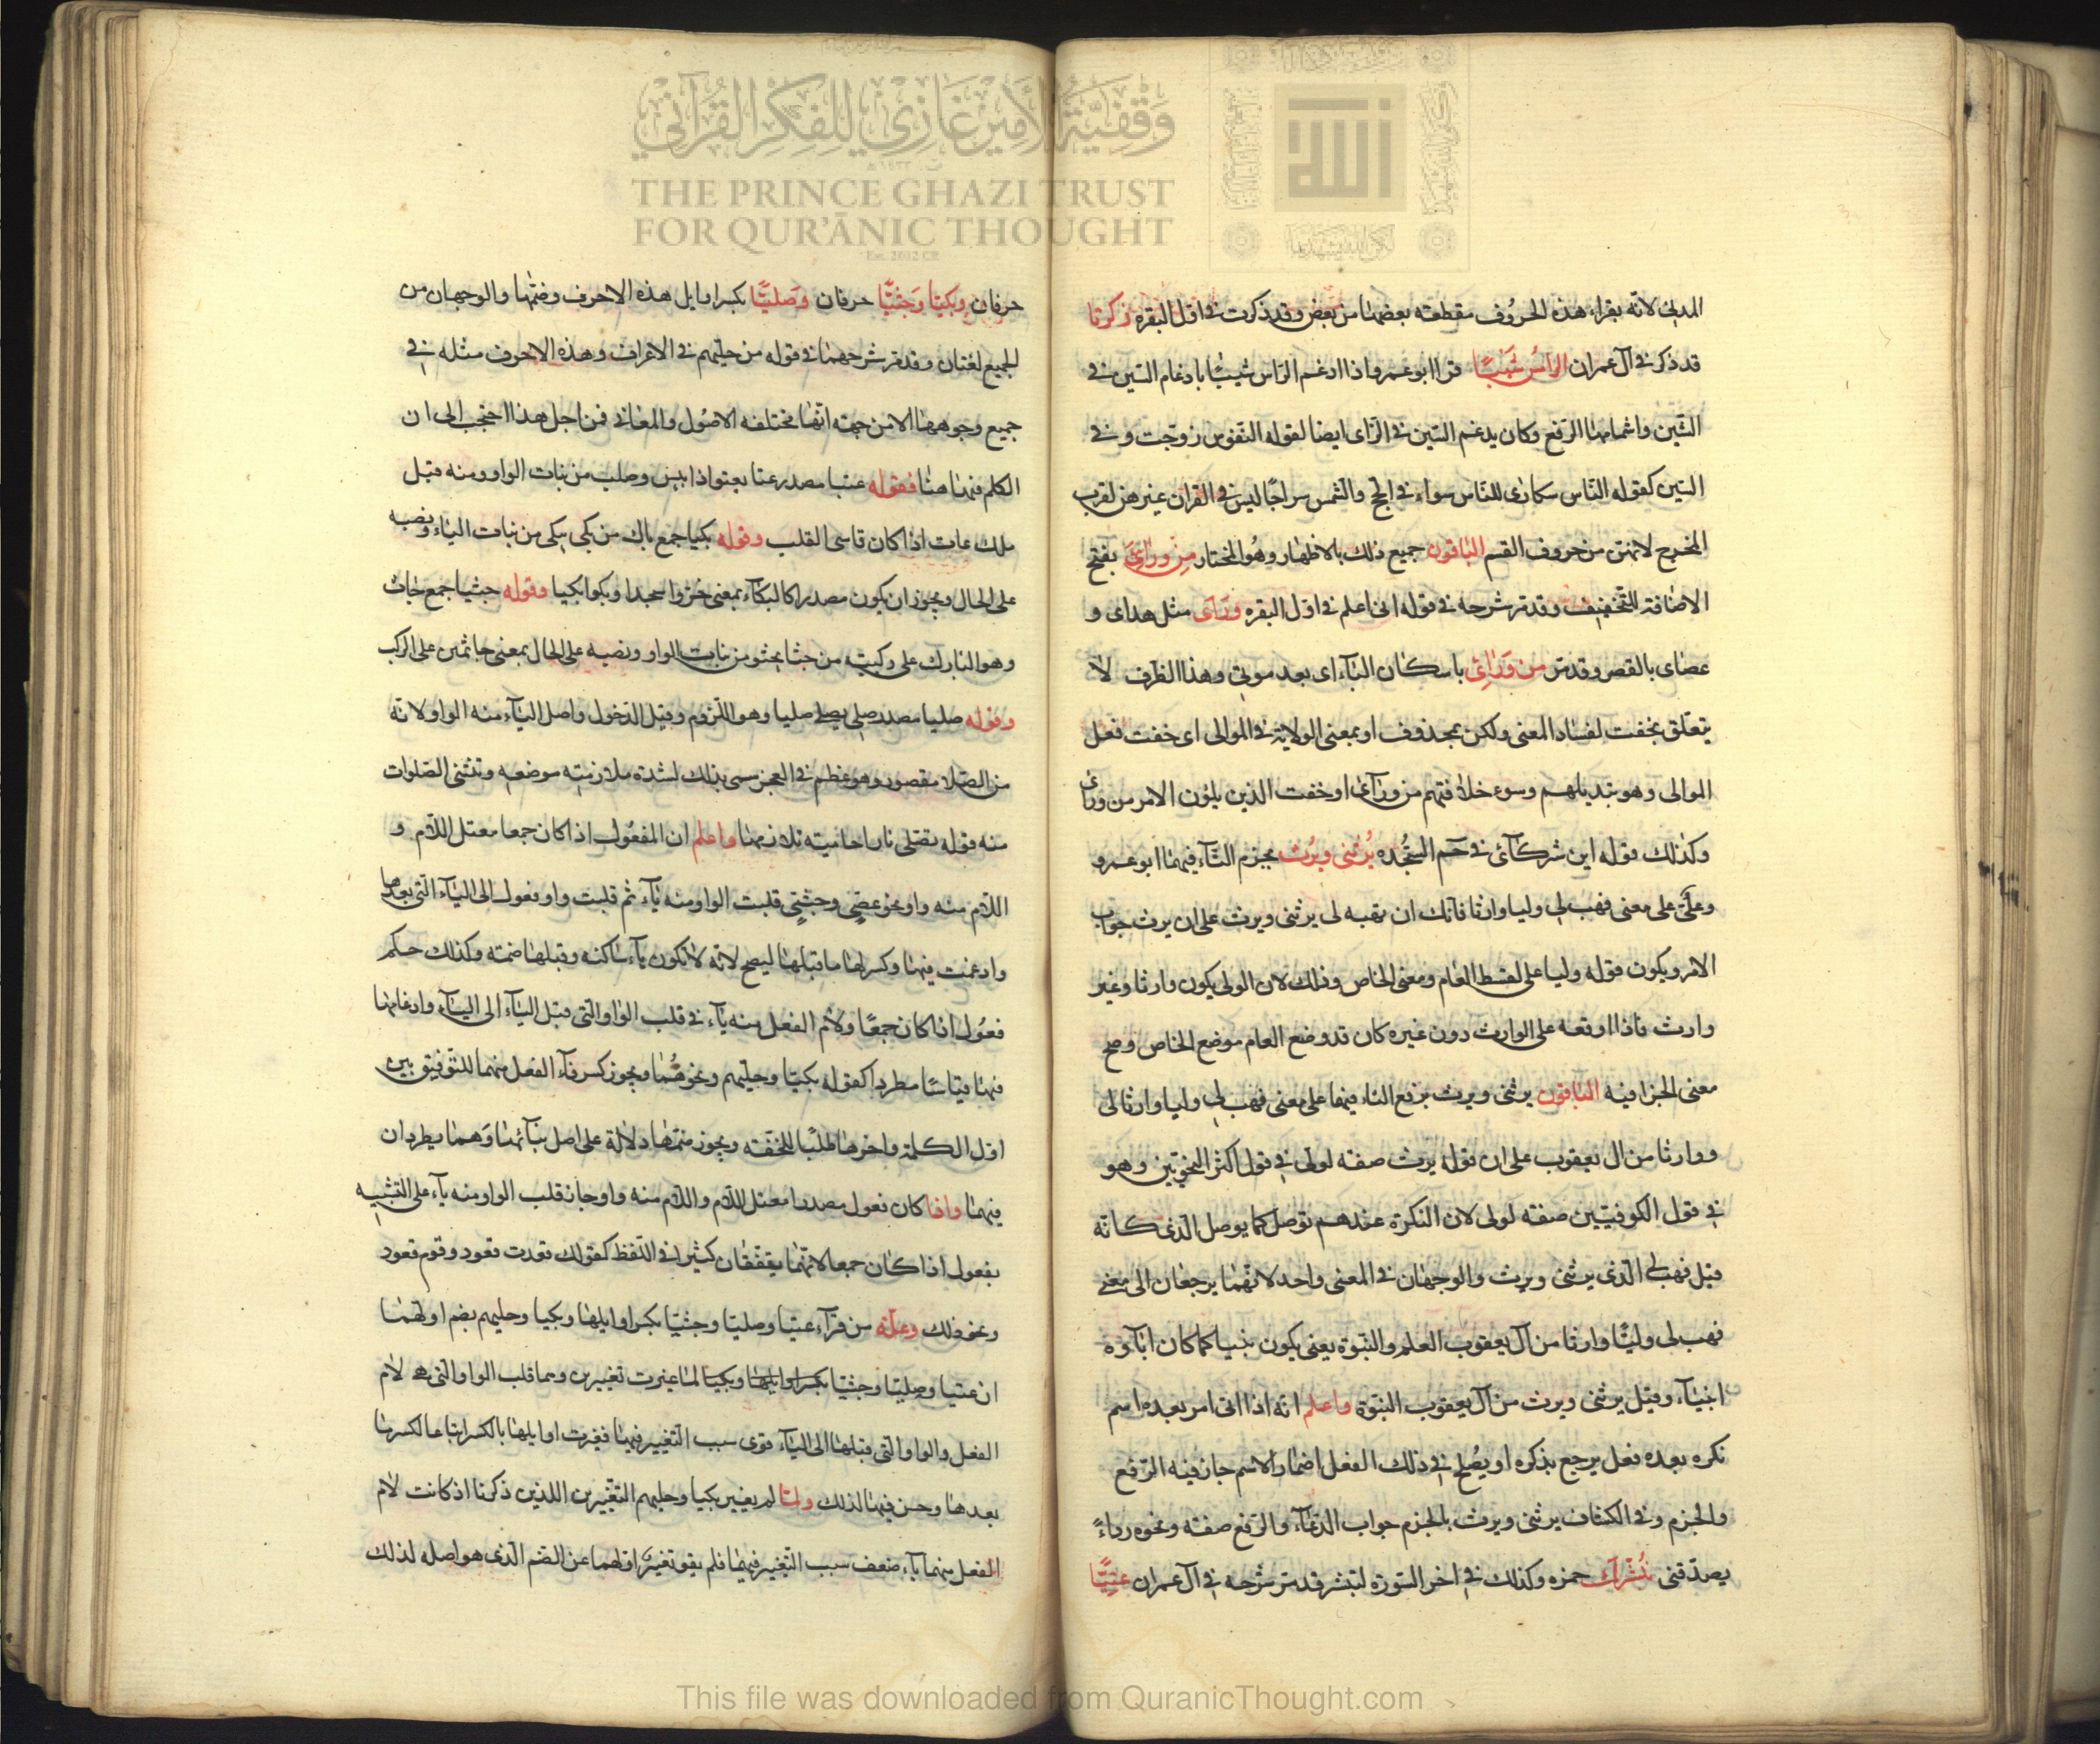 وقفية الأمير غازي للفكر القرآني
THE PRINCE GHAZI TRUST
FOR QUR'ĀNIC THOUGHT
Est. 2012 CE
المدنى لانه يقراء هذه الحروف مقطعة بعضها من بعض وقد ذكرت فى اول البقره زكريا
قد ذكر فى آل عمران الراسُ شَيبًا قرا ابو عمرو اذا ادغم الراس شيبًا بادغام السين فى
الشين واشمامها الرفع وكان يدغم السين فى الزاى ايضا لقوله النفوس زوجت وفى
السين كقوله الناس سكارى للناس سواء فى الحج والشمس سراجًا ليس فى القران غيرهن لقرب
المخرج لانهن من حروف القسم الباقون جميع ذلك بالاظهار وهو المختار مِن ورَاىَ بفتح
الاضافة للتخفيف وقد مر شرحه فى قوله انى اعلم فى اول البقره ورَاى مثل هداى و
عصاى بالقصر وقد مر من وَرَاِئ باسكان الياء اى بعد موتى وهذا الظرف لا
يتعلق بخفت لفساد المعنى ولكن بمحذوف او بمعنى الولاية فى الموالى اى خفت فعل
الموالى وهو تبديلهم وسوء خلافتهم من ورآئ او خفت الذين يلون الامر من ورائ
وكذلك قوله اين شركآئ فى حم السجده يَرثنى ويرث بجزم الثاء فيهما ابو عمرو
وعلىّ على معنى فهب لى وليا وارثا فانك ان تهبه لى يرثنى ويرث على ان يرث جواب
الامر ويكون قوله وليا على لفظ العام ومعنى الخاص وذلك لان الولى يكون وارثا وغير
وارث فاذا اوقعه على الوارث دون غيره كان قد وضع العام موضع الخاص وصح
معنى الجزا فيه الباقون يرثنى ويرث برفع الثاء فيهما على معنى فهب لى وليا وارثا لى
ووارثا من ال يعقوب على ان قوله يرث صفه لولى فى قول اكثر النحويين وهو
فى قول الكوفيين صفه لولى لان النكرة عندهم توصل كما يوصل الذى كانه
قيل فهب لى الذى يرثنى ويرث والوجهان فى المعنى واحد لانهما يرجعان الى معنى
فهب لى وليًا وارثا من آل يعقوب العلم والنبوة يعنى يكون نبيا كما كان اباؤه
انبياء وقيل يرثنى ويرث من آل يعقوب النبوة واعلم انه اذا اتى امر بعده اسم
نكره بعده فعل يرجع بذكره او يصلح فى ذلك الفعل اضمار الاسم جاز فيه الرفع
والجزم وفى الكشاف يرثنى ويرث بالجزم جواب الدعاء والرفع صفه ونحوه ردءً
يصدقنى نَبْشُرُك حمزه وكذلك فى اخر السورة لتبشر قد مر شرحه فى آل عمران عِتِيًّا
حرفان وبكيّا وَجثيًّا حرفان وَصليًّا بكسر اوايل هذه الاحرف وضمّها والوجهان من
الجميع لغتان وقد مر شرحهما فى قوله من حليهم فى الاعراف وهذه الاحرف مثله فى
جميع وجوهها الا من جهة انها مختلفه الاصول والمعانى فمن اجل هذا احتجب الى ان
الكلم فيها هنا فقوله عتيا مصدر عتا يعتو اذا يبس وصلب من بنات الواو ومنه قيل
ملك عات اذا كان قاسى القلب وقوله بكيا جمع باك من بكى يبكى من بنات الياء ونصبه
على الحال ويجوز ان يكون مصدرا كالبكآء بمعنى خروا سجدا وبكوا بكيا وقوله جثيا جمع جاث
وهو البارك على ركبتيه من جثا يجثو من بنات الواو ونصبه على الحال بمعنى جاثمين على الركب
وقوله صليا مصدر صلى يصلى صليا وهو اللزوم وقيل الدخول واصل الياء منه الواو لانه
من الصلا مقصور وهو عظم فى العجز سمى بذلك لشدة ملازمته موضعه وتثنى الصلوات
منه قوله تصلى نارا حامية تلازمها واعلم ان المفعول اذا كان جمعا معتل اللام و
اللام منه واو نحو عصى وجثى قلبت الواو منه ياء ثم قلبت واو فعول الى الياء التى بعدها
وادغمت فيها وكسر لها ما قبلها ليصح لانه لا تكون ياء ساكنه وقبلها ضمة وكذلك حكم
فعول اذا كان جمعًا ولام الفعل منه ياء فى قلب الواو التى قبل الياء الى الياء وادغامها
فيها قياسًا مطردا كقوله بكيًا وحليهم ونحوهما ويجوز كسر فاء الفعل منهما للتوفيق بين
اول الكلمة واخرها طلبًا للخفة ويجوز ضمها دلالة على اصل بنائها وهما يطردان
فيهما واذا كان فعول مصدرا معتل اللام واللام منه واو جاز قلب الواو منه ياء على التشبيه
بفعول اذا كان جمعا لانهما يتفقان كثيرا فى اللفظ كقولك قعدت قعود وقوم قعود
ونحو ذلك وعلة من قرآء عتيا وصليا وجثيا بكسر اوايلها وبكيا وحليهم بضم اولهما
ان عتيا وصليا وجثيا بكسر اوايلها وبكيا لما غيرت تغييرين وهما قلب الواو التى هى لام
الفعل والواو التى قبلها الى الياء قوى سبب التغيير فيها فغيرت اوايلها بالكسر اتباعا لكسر ما
بعدها وحسن فيها لذلك ولما لم يغيير بكيا وحليهم التغييرين اللذين ذكرنا اذ كانت لام
الفعل منهما ياء ضعف سبب التغيير فيهما فلم يقو تغيير اولهما عن الضم الذى هو اصله لذلك
This file was downloaded from QuranicThought.com